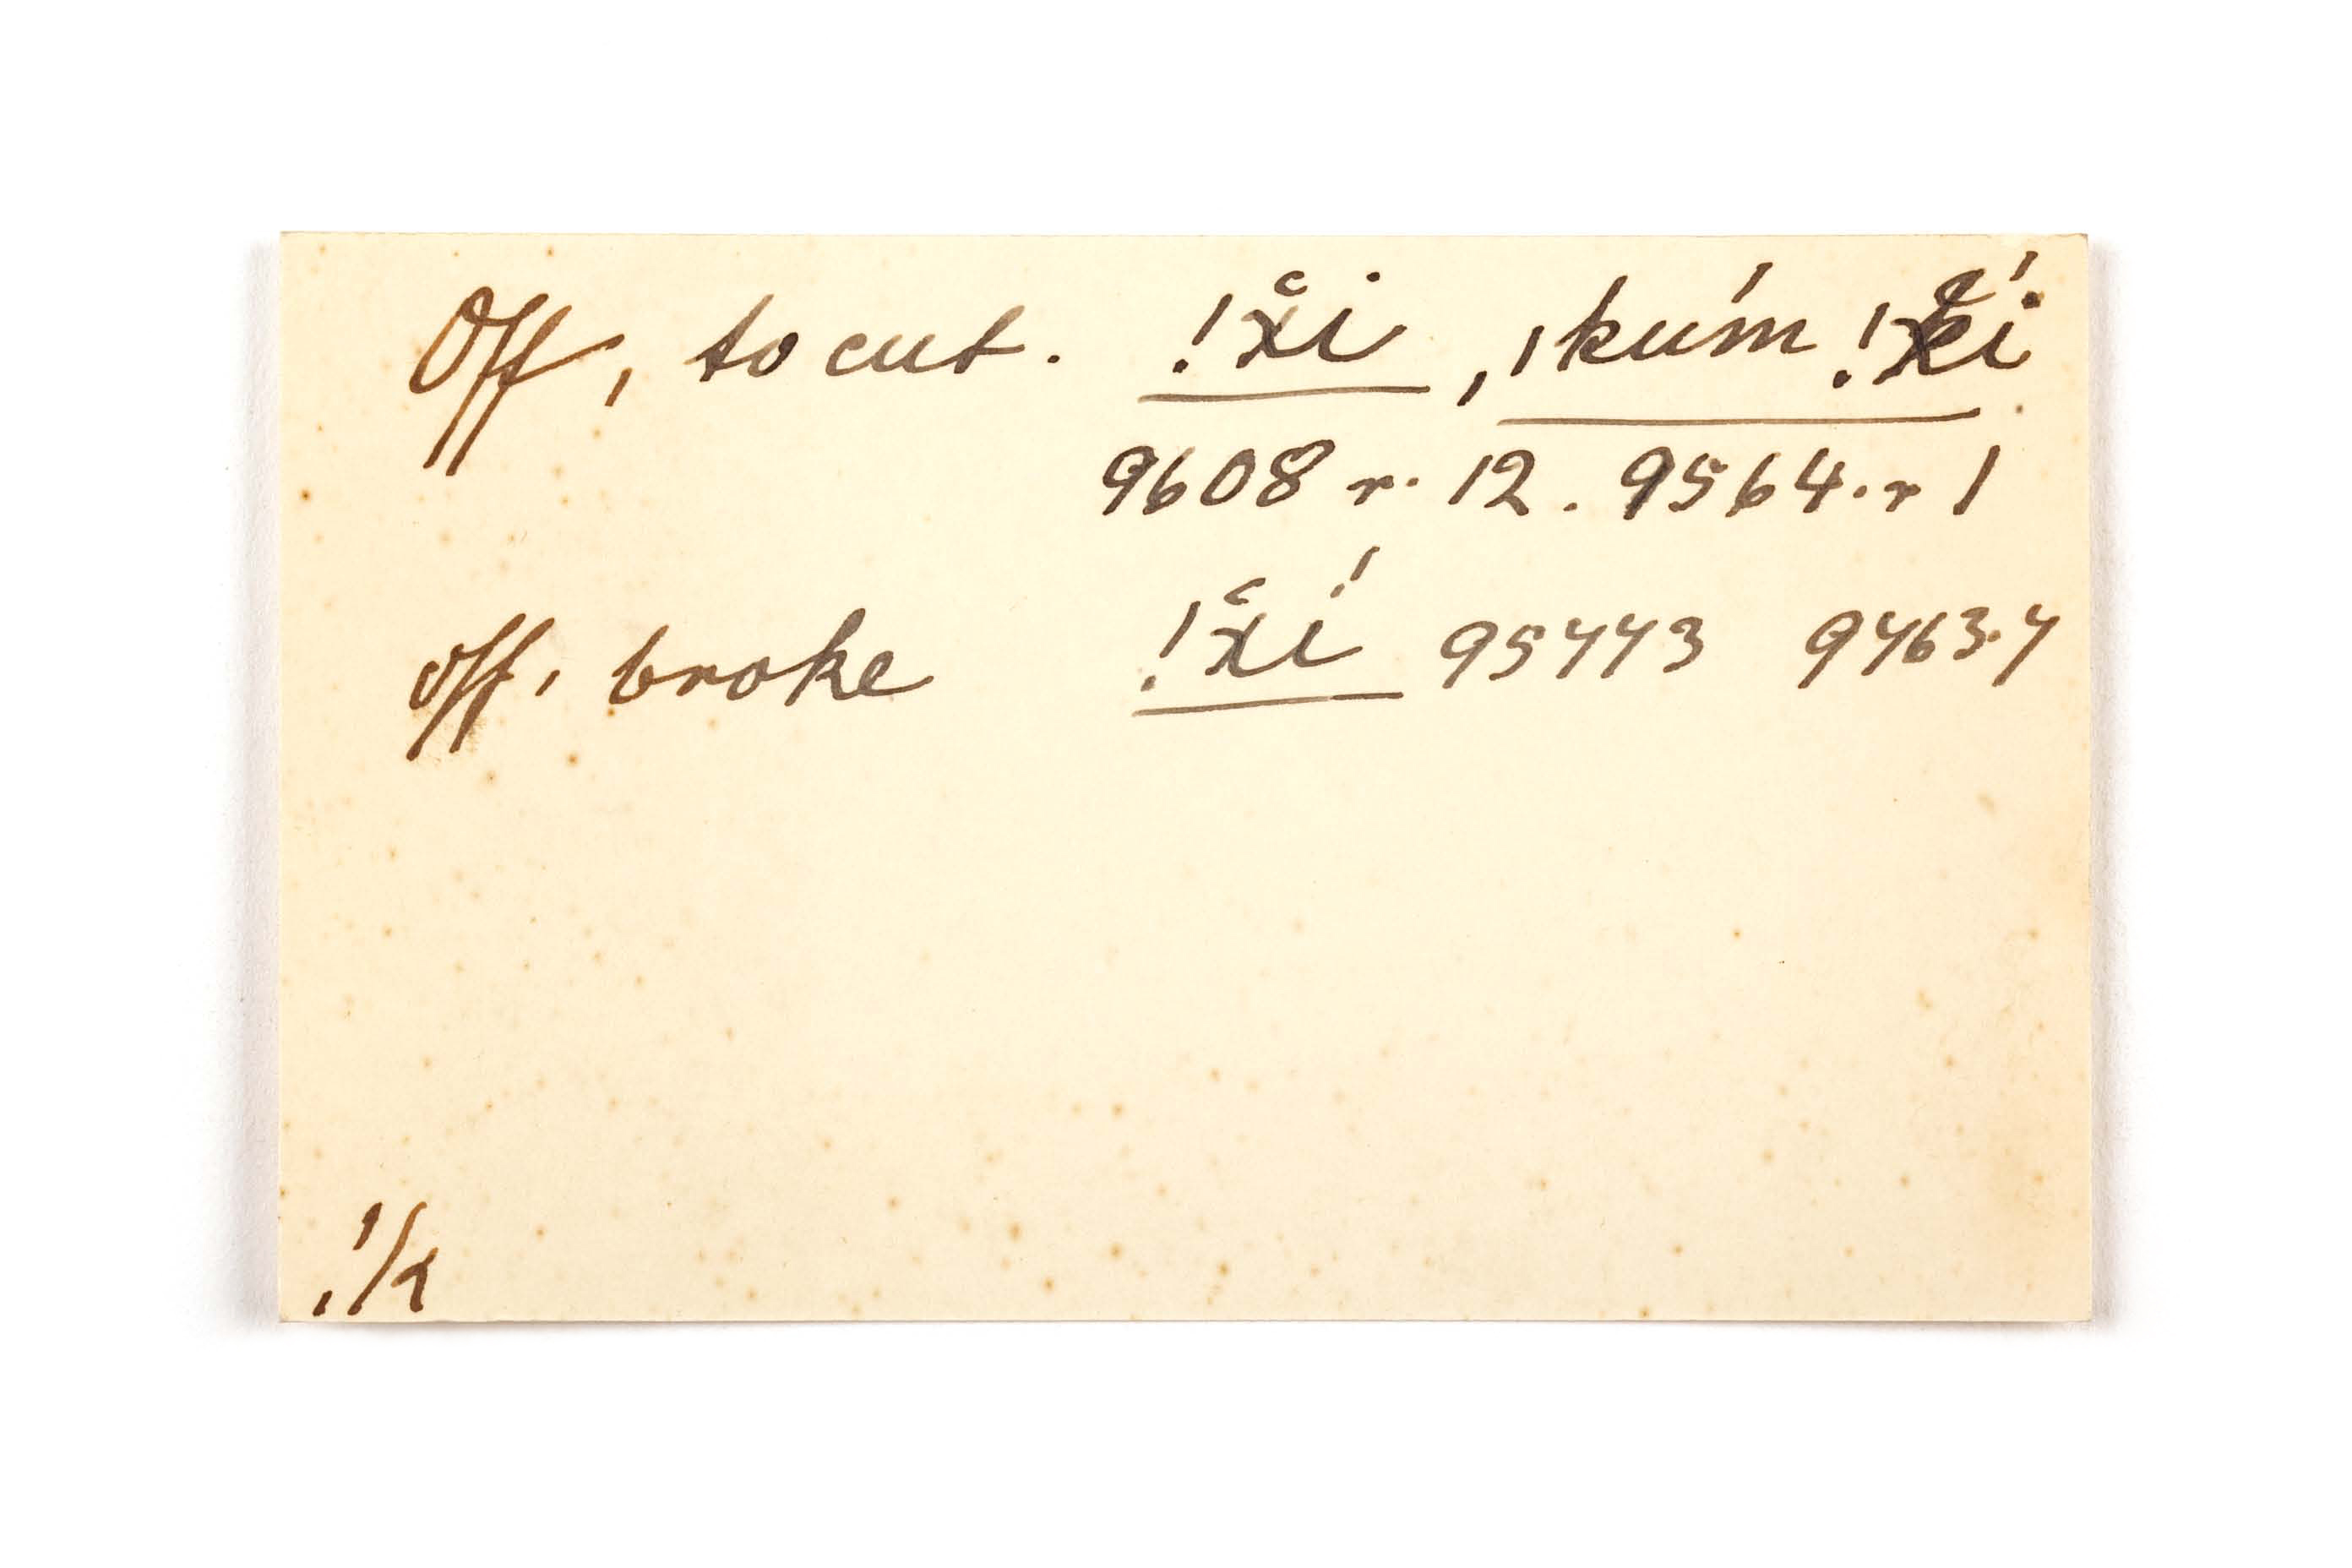 Off, to cut. !x̆i, ıkúm !x̆í
9608 r. 12. 9564. r 1
off, broke !x̆í 95773 9763.7
!k